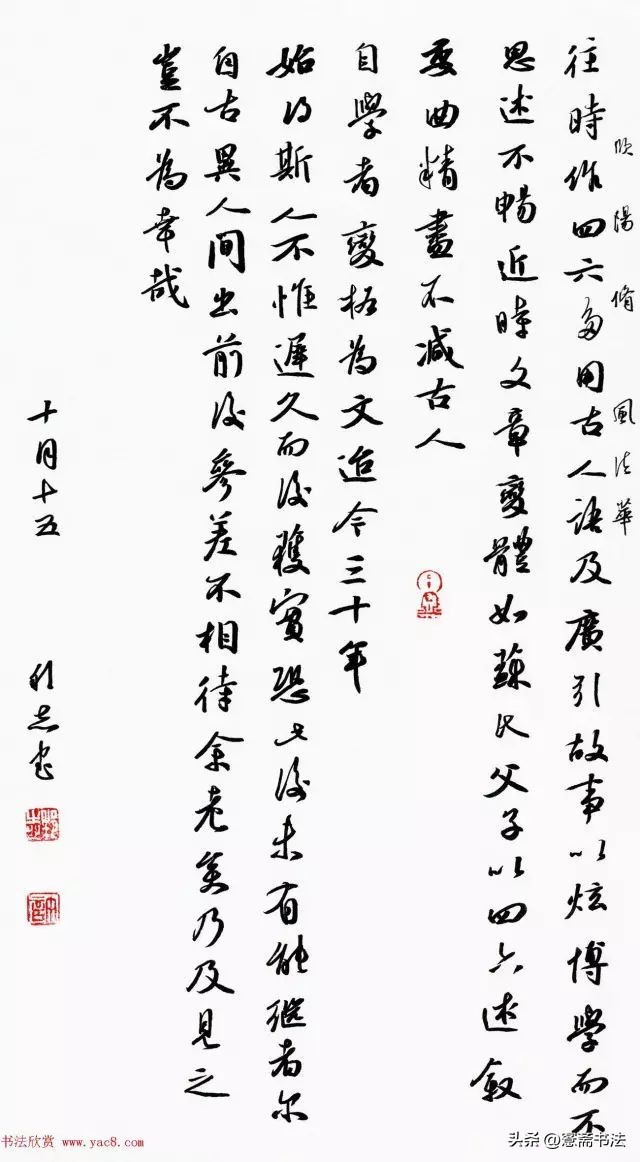 歐陽脩 風法華
往時作四六多用古人語及廣引故事以炫博學而不
思述不暢近時文章變體如蘇氏父子以四六述敘
委曲精盡不減古人
自學者變格為文迨今三十年
始得斯人不惟遲久而後獲實恐此後未有能繼者尔
自古異人間出前後參差不相待余老矣乃及見之
豈不為幸哉
十月十五
书法欣赏 www.yac8.com
头条@憲斋书法